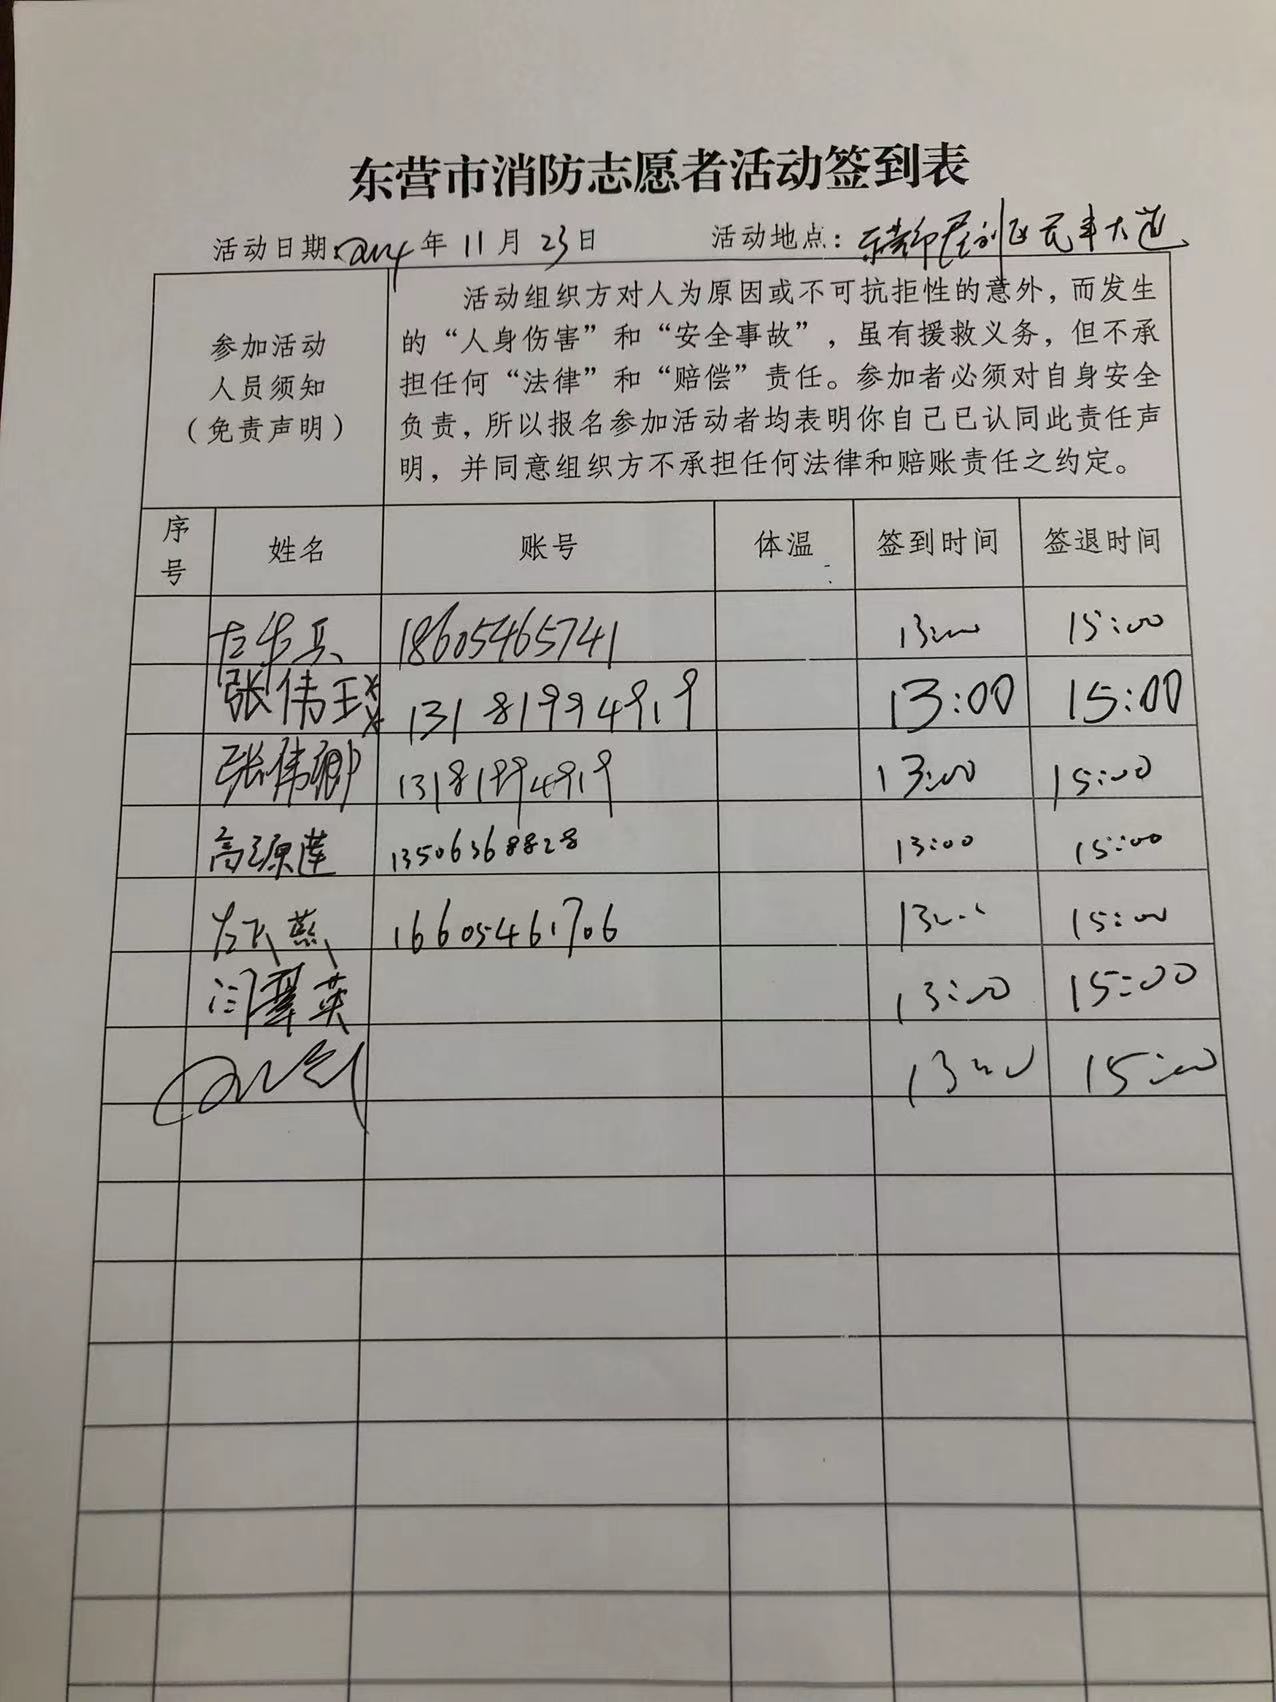 东营市消防志愿者活动签到表
活动日期:2024年11月23日 活动地点:东营市垦利区民丰大道
参加活动
人员须知
(免责声明)
活动组织方对人为原因或不可抗拒性的意外,而发生
的“人身伤害”和“安全事故”,虽有援救义务,但不承
担任何“法律”和“赔偿”责任。参加者必须对自身安全
负责,所以报名参加活动者均表明你自己已认同此责任声
明,并同意组织方不承担任何法律和赔账责任之约定。
序号 姓名 账号 体温 签到时间 签退时间
18605465741 13:00 15:00
张伟 13181994919 13:00 15:00
张伟卿 13181994919 13:00 15:00
高源莲 13506368828 13:00 15:00
左飞燕 16605461706 13:00 15:00
闫翠英 13:00 15:00
13:00 15:00